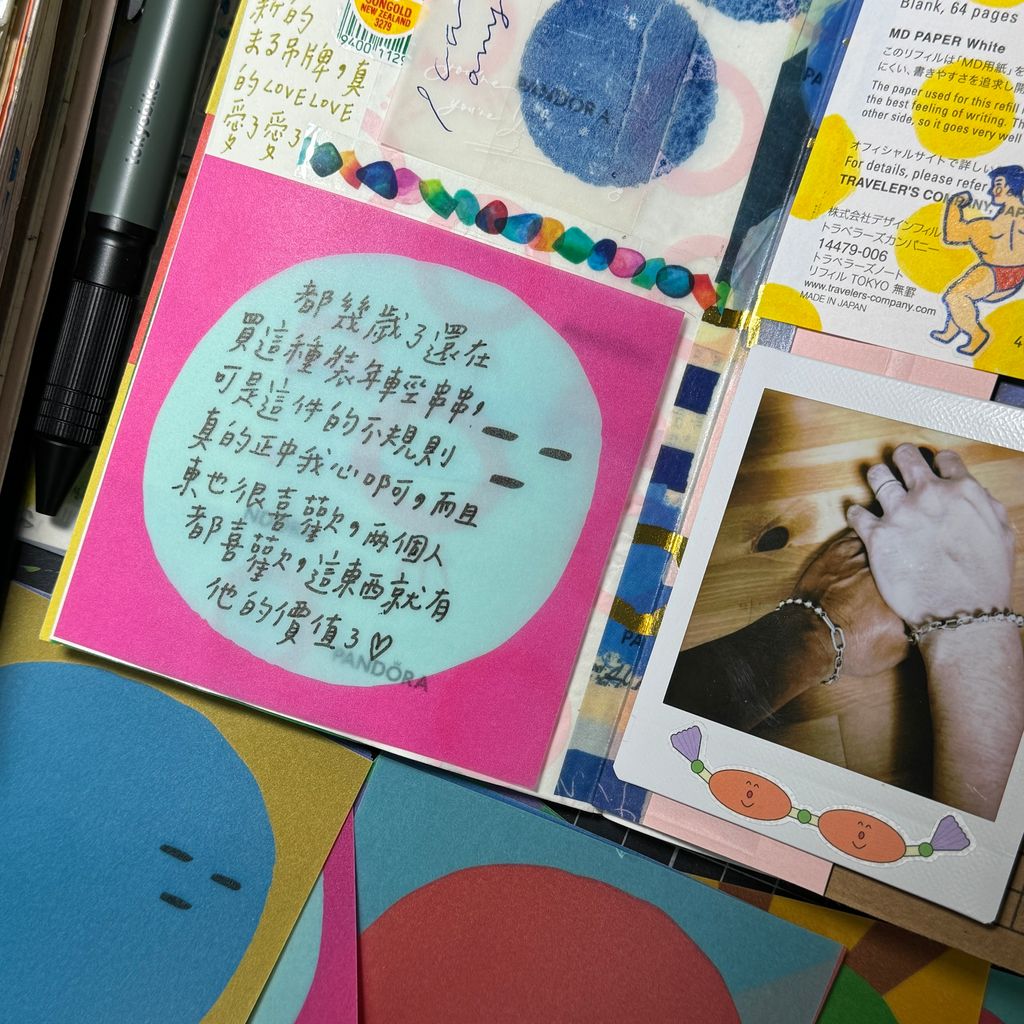 新的
まる吊牌,真
的LOVELOVE
愛了愛了
JONGOLD
NEW ZEALAND
3279
PANDORA
都幾歲了還在
買這種裝年輕串串,
可是這件的不規則
真的正中我心啊,而且
東也很喜歡,兩個人
都喜歡,這東西就有
他的價值了♡
PANDORA
Blank, 64 pages
MD PAPER White
このリフィルは「MD用紙」を
にくい、書きやすさを追求し開
The paper used for this refill
the best feeling of writing. Th
other side, so it goes very well
オフィシャルサイトで詳しい
For details, please refer
TRAVELER'S COMPANY JAP
株式会社デザインフィル
トラベラーズカンパニー
14479-006
トラベラーズノート
リフィル TOKYO 無罫
www.travelers-company.com
MADE IN JAPAN
PA